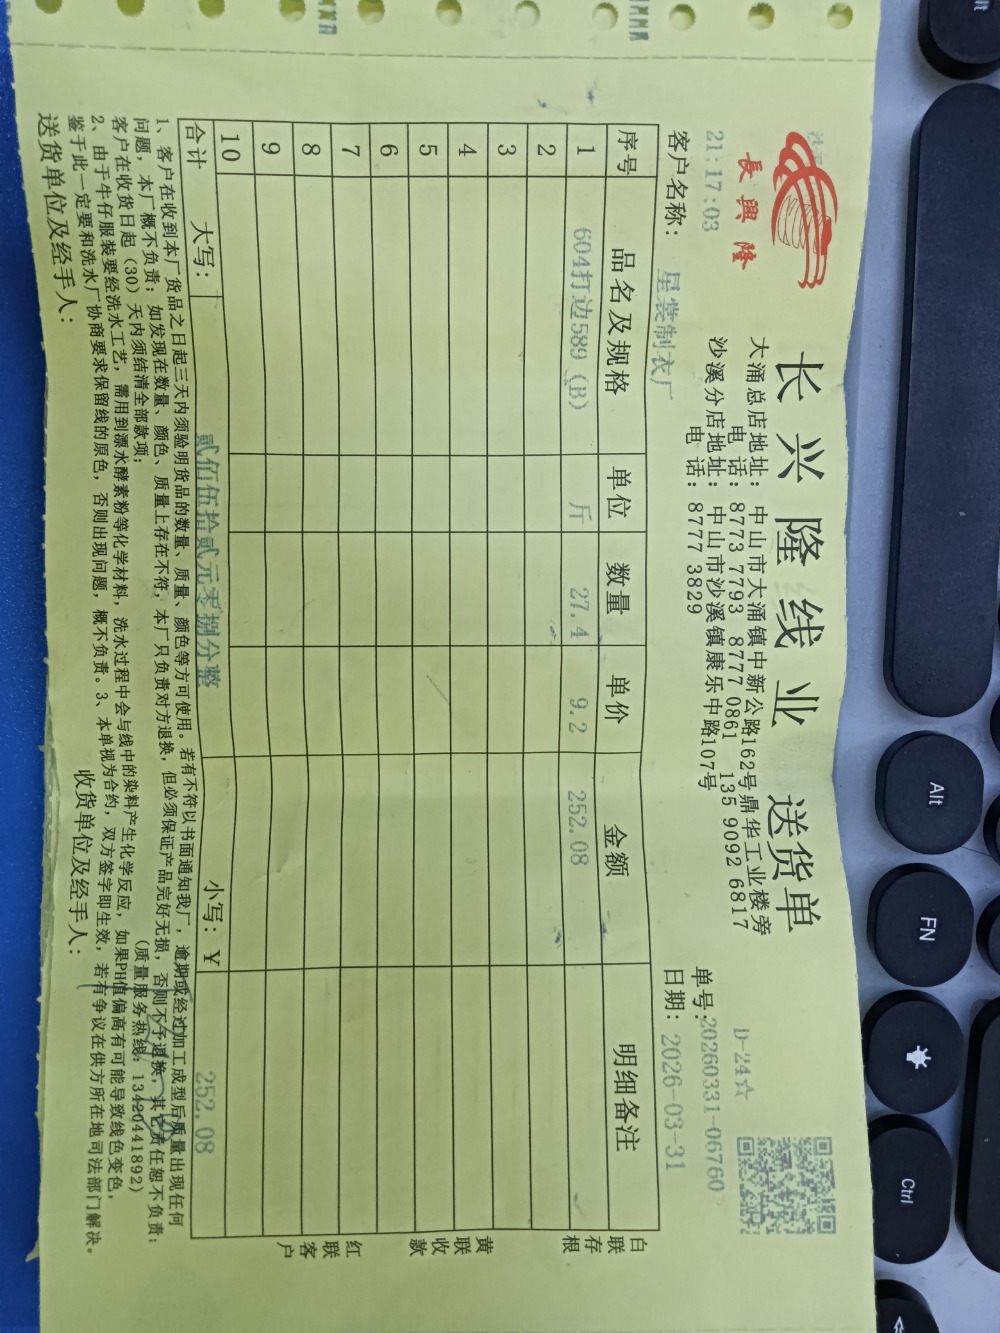 長興隆
长兴隆线业 送货单
D-24☆
大涌总店地址：中山市大涌镇中新公路162号鼎华工业楼旁
电 话：8773 7793 8777 0861 135 9092 6817
21:17:03
沙溪分店地址：中山市沙溪镇康乐中路107号
电 话：8777 3829
单号：20260331-06760
客户名称：星裳制衣厂
日期：2026-03-31
序号 品名及规格 单位 数量 单价 金额 明细备注
1 604打边589（B） 斤 27.4 9.2 252.08
2
3
4
5
6
7
8
9
10
合计 大写：贰佰伍拾贰元零捌分整 小写：￥ 252.08
白联存根
黄联收款
红联客户
1、客户在收到本厂货品之日起三天内须验明货品的数量、质量、颜色等方可使用。若有不符以书面通知我厂，逾期或经过加工成型后质量出现任何
问题，本厂概不负责；如发现在数量、颜色、质量上存在不符，本厂只负责对方退换，但必须保证产品完好无损，否则不予退换，其它责任恕不负责；
客户在收货日起（30）天内须结清全部款项； （质量服务热线：13420441892）
2、由于牛仔服装要经洗水工艺，需用到漂水酵素粉等化学材料，洗水过程中会与线中的染料产生化学反应，如果PH值偏高有可能导致线色变色，
鉴于此一定要和洗水厂协商要求保留线的原色，否则出现问题，概不负责。3、本单视为合约，双方签字即生效，若有争议在供方所在地司法部门解决。
送货单位及经手人： 收货单位及经手人：
Alt
FN
Ctrl